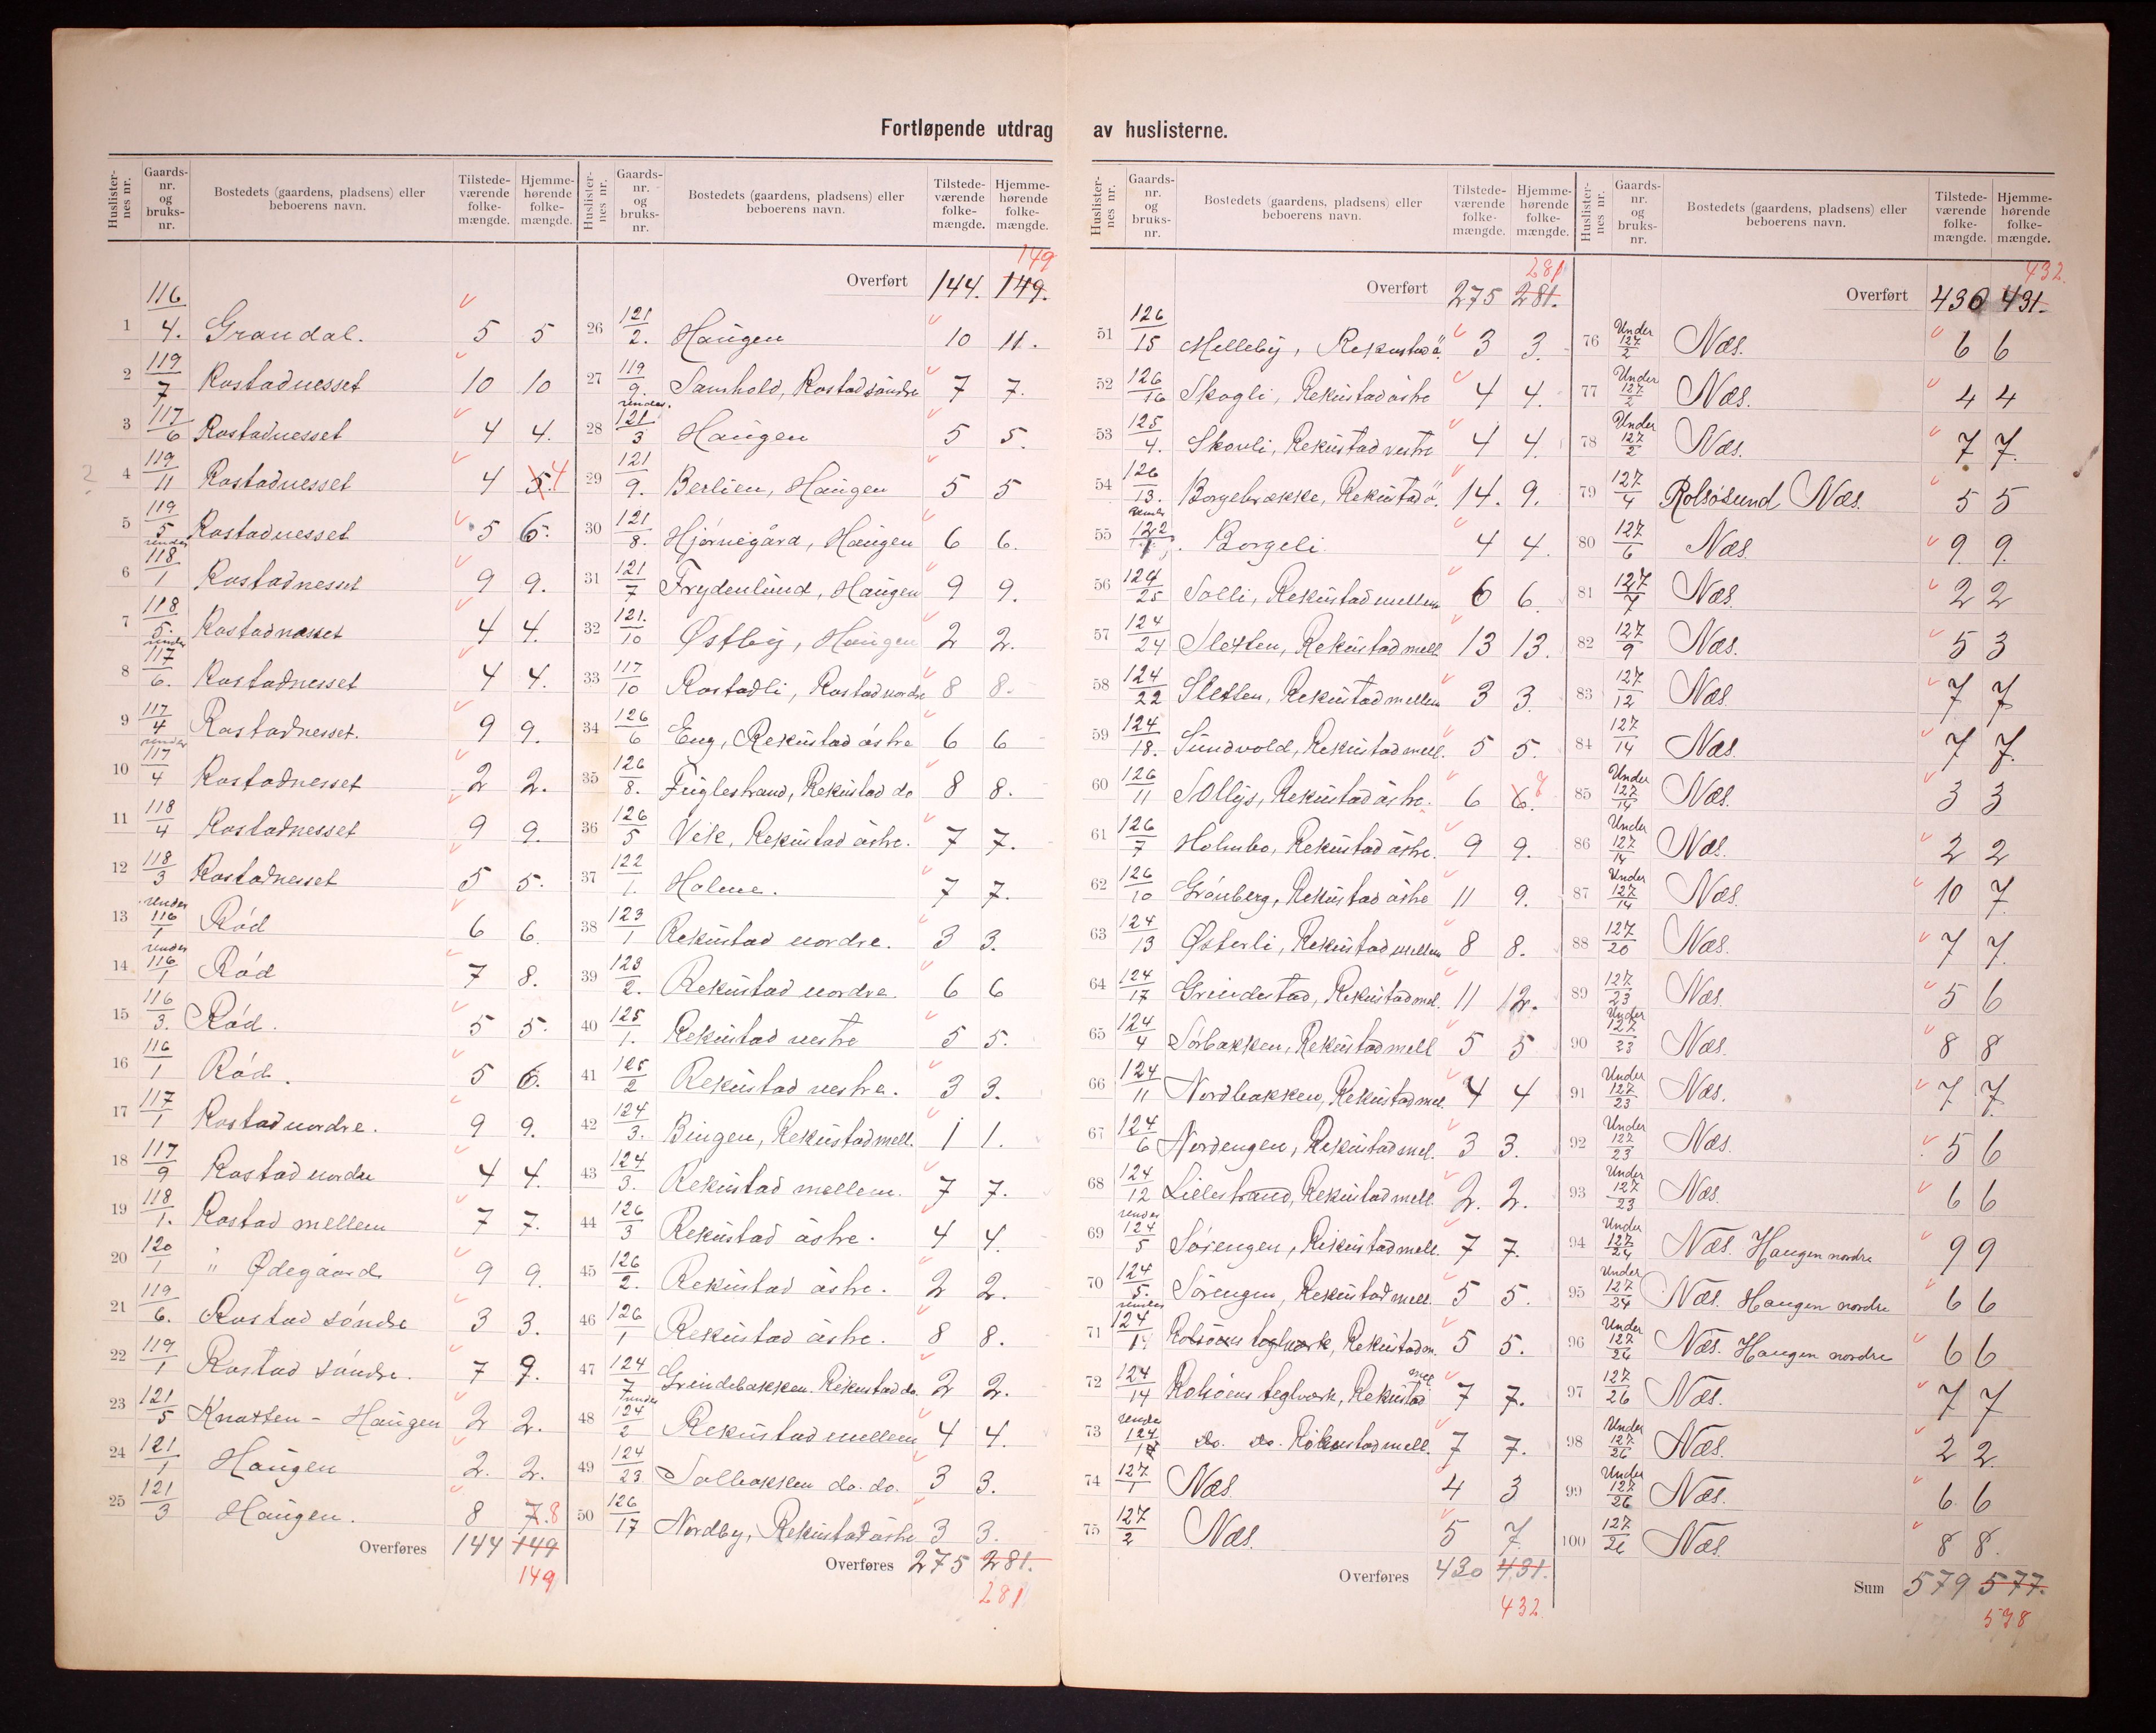 Fortløpende utdrag av huslisterne.
Huslisternes nr. Gaardsnr. og bruksnr. Bostedets (gaardens, pladsens) eller beboerens navn. Tilstedeværende folkemængde. Hjemmehørende folkemængde.
1 116/4. Grandal. 5 5
2 119/7 Rostadnesset 10 10
3 117/6 Rostadnesset 4 4.
4 119/11 Rostadnesset 4 5 4
5 119/5 Rostadnesset 5 6.
6 under 118/1 Rostadnesset 9 9.
7 118/5. Rostadnesset 4 4.
8 under 117/6. Rostadnesset 4 4.
9 117/4 Rostadnesset. 9 9.
10 under 117/4 Rostadnesset 2 2.
11 118/4 Rostadnesset 9 9.
12 118/3 Rostadnesset 5 5.
13 under 116/1 Rød 6 6.
14 under 116/1 Rød 7 8.
15 116/3. Rød. 5 5.
16 116/1 Rød. 5 6.
17 117/1 Rostad nordre. 9 9.
18 117/9 Rostad nordre 4 4.
19 118/1. Rostad mellem 7 7.
20 120/1 " Ødegaard 9 9.
21 119/6. Rostad søndre 3 3.
22 119/1 Rostad søndre. 7 9.
23 121/5 Knatten - Haugen 2 2.
24 121/1 Haugen 2. 2.
25 121/3 Haugen. 8 7. 8
Overføres 144 149
149
Huslisternes nr. Gaardsnr. og bruksnr. Bostedets (gaardens, pladsens) eller beboerens navn. Tilstedeværende folkemængde. Hjemmehørende folkemængde.
149
Overført 144. 149.
26 121/2. Haugen 10 11.
27 119/9. Samhold, Rostad søndre 7 7.
28 under. 121/3 Haugen 5 5.
29 121/9. Berlien, Haugen 5 5
30 121/8. Hjørnegård, Haugen 6 6.
31 121/7 Frydenlund, Haugen 9 9.
32 121./10 Østby, Haugen 2 2.
33 117/10 Rostadli, Rostad nordre 8 8.
34 126/6 Eng, Rekustad østre 6 6
35 126/8. Fuglestrand, Rekustad do 8 8.
36 126/5 Vik, Rekustad østre. 7 7.
37 122/1. Holme. 7 7.
38 123/1 Rekustad nordre. 3 3.
39 123/2. Rekustad nordre. 6 6
40 125/1. Rekustad vestre 5 5.
41 125/2 Rekustad vestre. 3 3.
42 124/3. Bingen, Rekustad mell. 1 1.
43 124/3. Rekustad mellem. 7 7.
44 126/3 Rekustad østre. 4 4.
45 126/2. Rekustad østre. 2 2.
46 126/1 Rekustad østre. 8 8.
47 124/7 Grindebakken. Rekustad do. 2 2.
48 under 124/2 Rekustad mellem 4 4.
49 124/23 Solbakken do. do. 3 3.
50 126/17 Nordby, Rekustad østre 3 3.
Overføres 275 281.
281
Huslisternes nr. Gaardsnr. og bruksnr. Bostedets (gaardens, pladsens) eller beboerens navn. Tilstedeværende folkemængde. Hjemmehørende folkemængde.
281
Overført 275 281.
51 126/15 Melleby, Rekustad ø. 3 3.
52 126/16 Skogli, Rekustad østre 4 4.
53 125/4. Skovli, Rekustad vestre 4 4.
54 126/13. Borgebrække, Rekustad ø. 14. 9.
55 under 122/1. Borgeli. 4 4.
56 124/25 Solli, Rekustad mellem 6 6.
57 124/24 Sletten, Rekustad mell. 13 13.
58 124/22 Sletten, Rekustad mellem 3 3.
59 124/18. Sundvold, Rekustad mell. 5 5.
60 126/11 Sollys, Rekustad østre. 6 6.
61 126/7 Holmbo, Rekustad østre. 9 9.
62 126/10 Grønberg, Rekustad østre 11 9.
63 124/13 Østerli, Rekustad mellem 8 8.
64 124/17 Grindestad, Rekustad mel. 11 12.
65 124/4 Sørbakken, Rekustad mell 5 5
66 124/11 Nordbakken, Rekustad mel. 4 4
67 124/6 Nordengen, Rekustad mel. 3 3.
68 124/12 Lillestrand, Rekustad mell. 2. 2.
69 under 124/5 Sørengen, Rekustad mell. 7 7.
70 124/5. Sørengen, Rekustad mell. 5 5.
71 under 124/14 Rolsøens teglverk, Rekustad m. 5 5.
72 124/14 Rolsøens teglverk, Rekustad mel 7 7.
73 under 124/14 do. do. Rekustad mell. 7 7.
74 127/1 Næs. 4 3
75 127/2 Næs. 5 7.
Overføres 430 431.
432.
Huslisternes nr. Gaardsnr. og bruksnr. Bostedets (gaardens, pladsens) eller beboerens navn. Tilstedeværende folkemængde. Hjemmehørende folkemængde.
432
Overført 430 431.
76 Under 127/2 Næs. 6 6
77 Under 127/2 Næs. 4 4
78 Under 127/2 Næs. 7 7.
79 127/4 Rolsøsund Næs. 5 5
80 127/6 Næs. 9 9.
81 127/7 Næs. 2 2
82 127/9 Næs. 5 3
83 127/12 Næs. 7 7
84 127/14 Næs. 7 7.
85 Under 127/14 Næs. 3 3
86 Under 127/14 Næs. 2 2
87 Under 127/14 Næs. 10 7
88 127/20 Næs. 7 7.
89 127/23 Næs. 5 6
90 Under 127/23 Næs. 8 8
91 Under 127/23 Næs. 7 7.
92 Under 127/23 Næs. 5 6
93 Under 127/23 Næs. 6 6
94 Under 127/24 Næs. Haugen nordre 9 9
95 Under 127/24 Næs. Haugen nordre 6 6
96 Under 127/24 Næs. Haugen nordre 6 6
97 127/26 Næs. 7 7
98 Under 127/26 Næs. 2 2
99 Under 127/26 Næs. 6. 6
100 127/26 Næs. 8 8.
Sum 579 577.
578